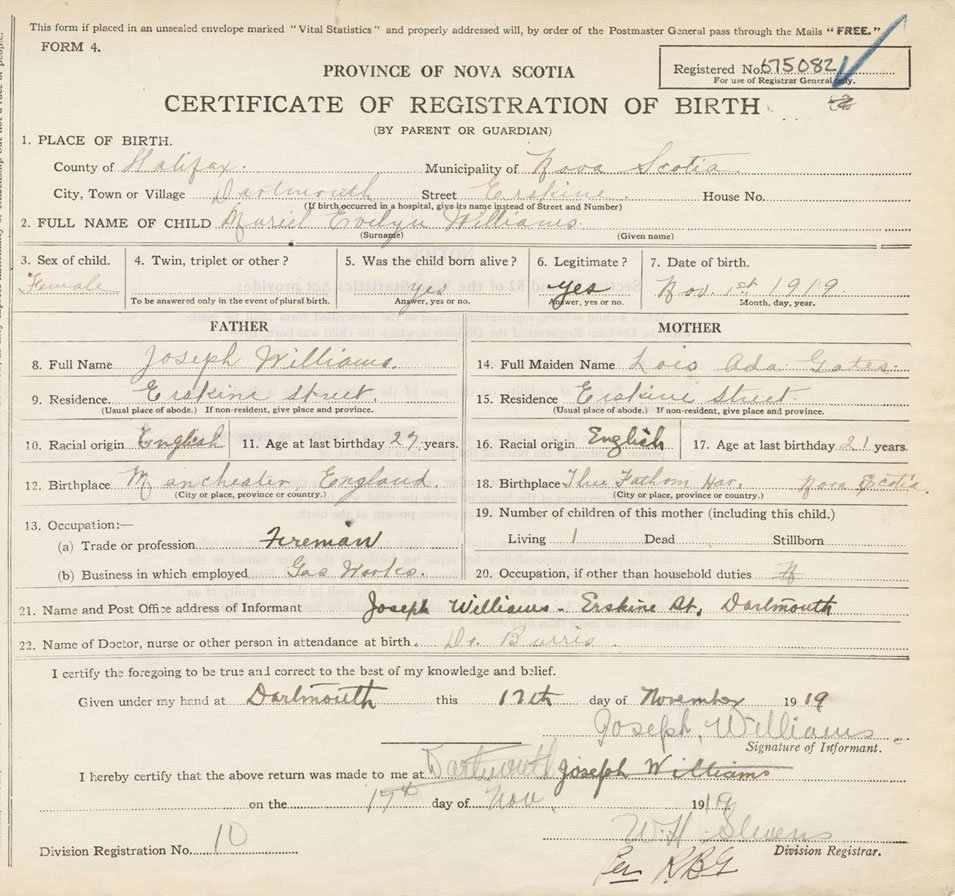 This form if placed in an unsealed envelope marked "Vital Statistics" and properly addressed will, by order of the Postmaster General pass through the Mails "FREE."
FORM 4.
Registered No. 675082
For use of Registrar General only.
PROVINCE OF NOVA SCOTIA
CERTIFICATE OF REGISTRATION OF BIRTH
(BY PARENT OR GUARDIAN)
1. PLACE OF BIRTH.
County of Halifax. Municipality of Nova Scotia
City, Town or Village Dartmouth Street Erskine House No.
(If birth occurred in a hospital, give its name instead of Street and Number)
2. FULL NAME OF CHILD Muriel Evelyn Williams
(Surname) (Given name)
3. Sex of child. 4. Twin, triplet or other? 5. Was the child born alive? 6. Legitimate? 7. Date of birth.
Female yes yes Nov. 1st 1919
To be answered only in the event of plural birth. Answer, yes or no. Answer, yes or no. Month, day, year.
FATHER MOTHER
8. Full Name Joseph Williams. 14. Full Maiden Name Lois Ada Gates
9. Residence. Erskine Street. 15. Residence Erskine Street
(Usual place of abode.) If non-resident, give place and province. (Usual place of abode.) If non-resident, give place and province.
10. Racial origin English 11. Age at last birthday 27 years. 16. Racial origin English 17. Age at last birthday 21 years.
12. Birthplace Manchester England. 18. Birthplace Three Fathom Har. Nova Scotia.
(City or place, province or country.) (City or place, province or country.)
13. Occupation:— 19. Number of children of this mother (including this child.)
(a) Trade or profession Fireman Living 1 Dead Stillborn
(b) Business in which employed Gas Works. 20. Occupation, if other than household duties
21. Name and Post Office address of Informant Joseph Williams - Erskine St, Dartmouth
22. Name of Doctor, nurse or other person in attendance at birth. Dr. Burris.
I certify the foregoing to be true and correct to the best of my knowledge and belief.
Given under my hand at Dartmouth this 17th day of November 1919
Joseph, Williams
Signature of Informant.
I hereby certify that the above return was made to me at Dartmouth Joseph Williams
on the 17th day of Nov. 1919
W.H. Stevens
Division Registration No. 10 Per R.B.G Division Registrar.